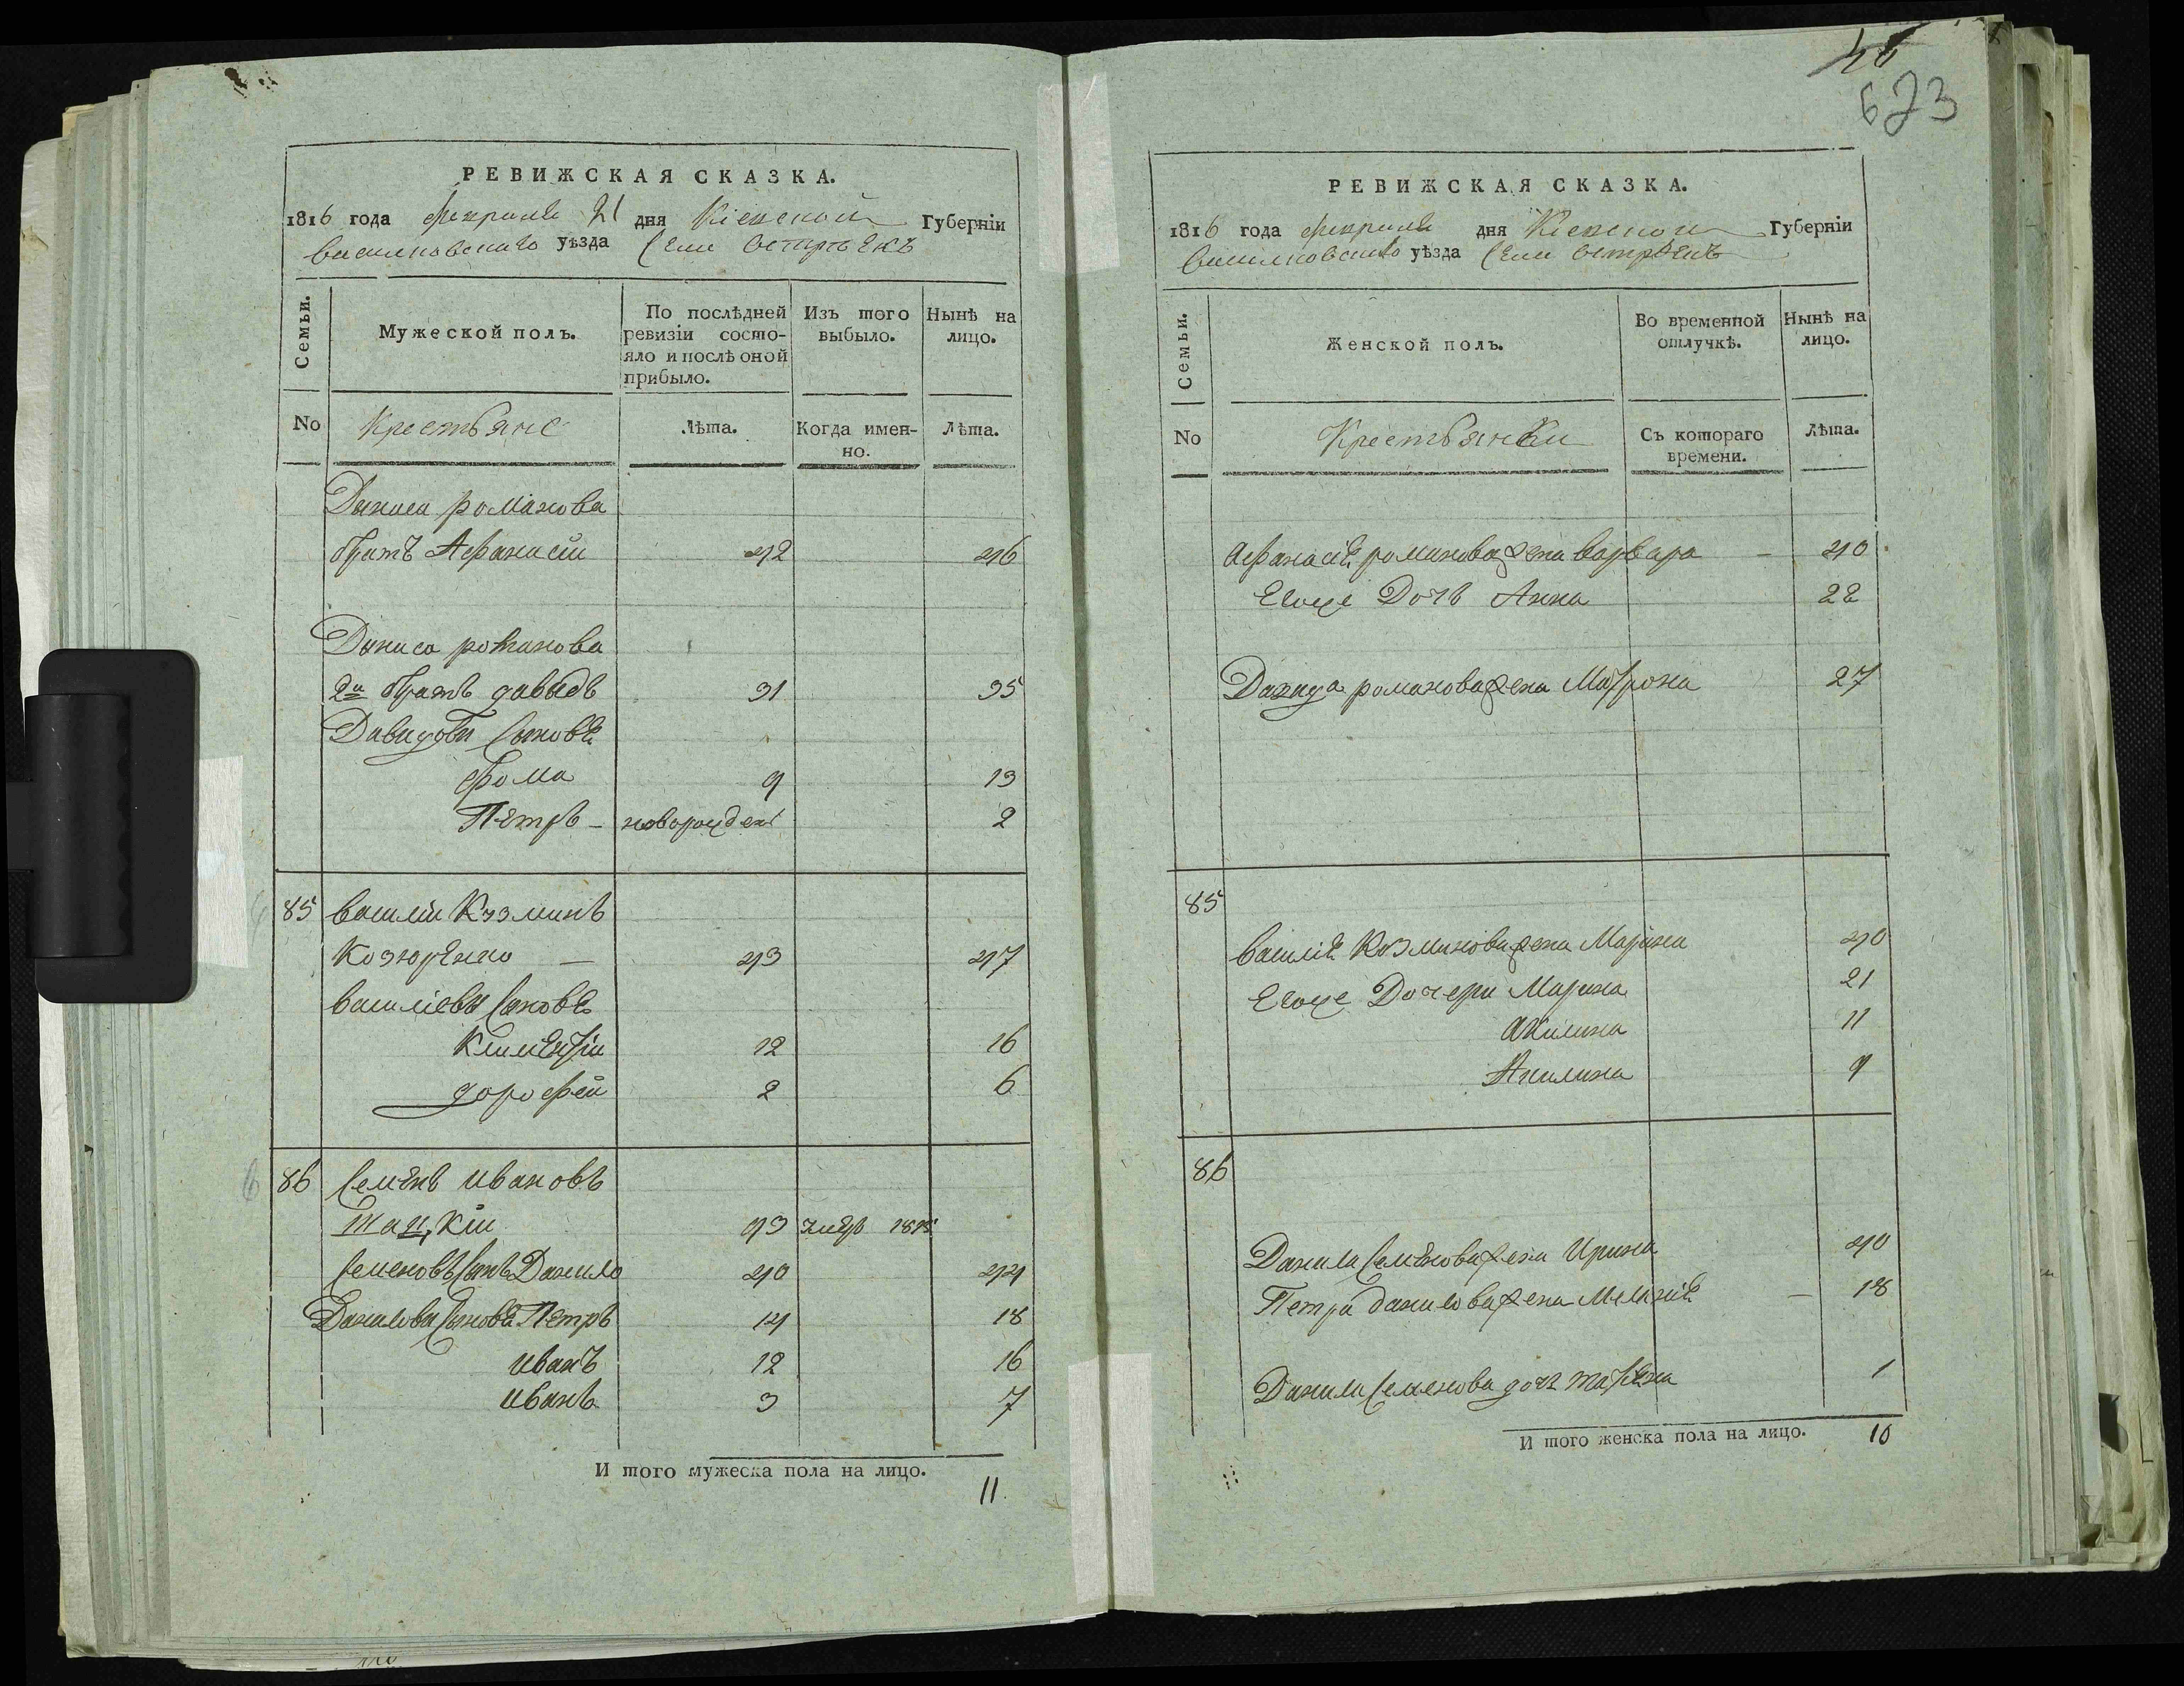 РЕВИЖСКАЯ СКАЗКА.
1816 года февраля 21 дня Кіевской Губерніи
Василковского уѣзда Села Острѣекъ
Семьи.
Мужеской полъ.
По послѣдней ревизіи состояло и послѣ оной прибыло.
Изъ того выбыло.
Нынѣ на лицо.
No
Крестьяне
Лѣта.
Когда именно.
Лѣта.
Дениса романова
братъ Афанасій 42 46
Дениса романова
2й братъ давидъ 31 35
Давидови Сыновѣ
Фома 9 13
Петръ - новорожден 2
85 василій Козминъ
Козюренко — 43 47
василіеви Сыновѣ
Климентій 12 16
дорофей 2 6
86 Семенъ Ивановъ
93 умеръ 1815
Семеновъ Сынъ Данило 40 44
Данилови Сыновѣ Петръ 14 18
Иванъ 12 16
Иванъ 3 7
И того мужеска пола на лицо.
11
40
673
РЕВИЖСКАЯ СКАЗКА.
1816 года февраля дня Кіевской Губерніи
Василковского уѣзда Села Острѣекъ
Семьи.
Женской полъ.
Во временной отлучкѣ.
Нынѣ на лицо.
No
Крестьянки
Съ котораго времени.
Лѣта.
Афанасія романова жена варвара — 40
Егоже Дочь Анна 22
Давида романова жена Матрона 27
85
василія Козминова жена Марина 40
Егоже Дочери Марина 21
Акилина 11
Акилина 9
86
Данила Семенова жена Ирина 40
Петра данилова жена Меланія — 18
Данила Семенова дочь татіяна 1
И того женска пола на лицо. 10